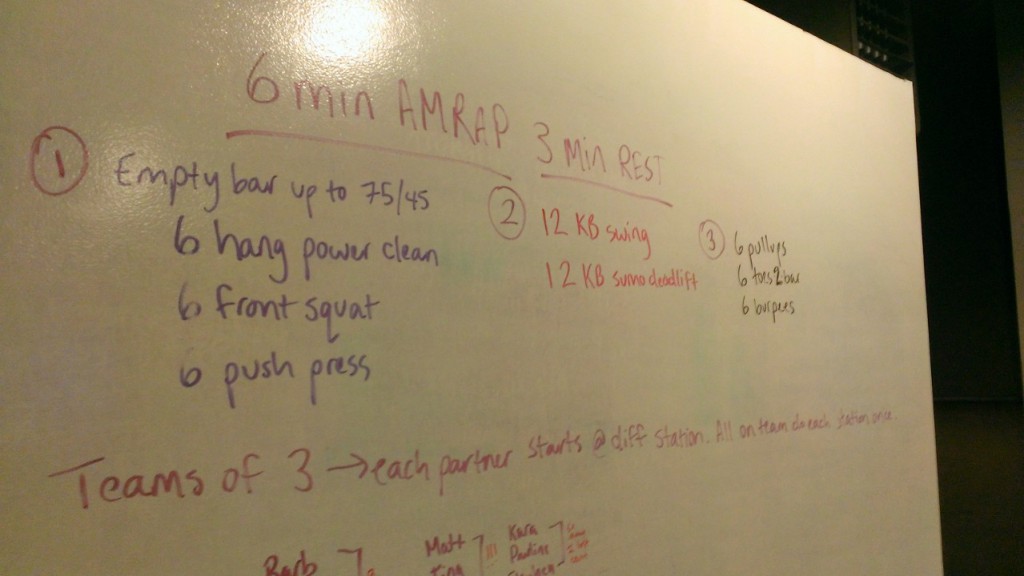 6 min AMRAP 3 Min REST
1
Empty bar up to 75/45
6 hang power clean
6 front squat
6 push press
2
12 KB swing
12 KB sumo deadlift
3
6 pullups
6 toes2bar
6 burpees
Teams of 3 → each partner starts @ diff station. All on team do each station once.
Barb
Matt
Kara
Pauline